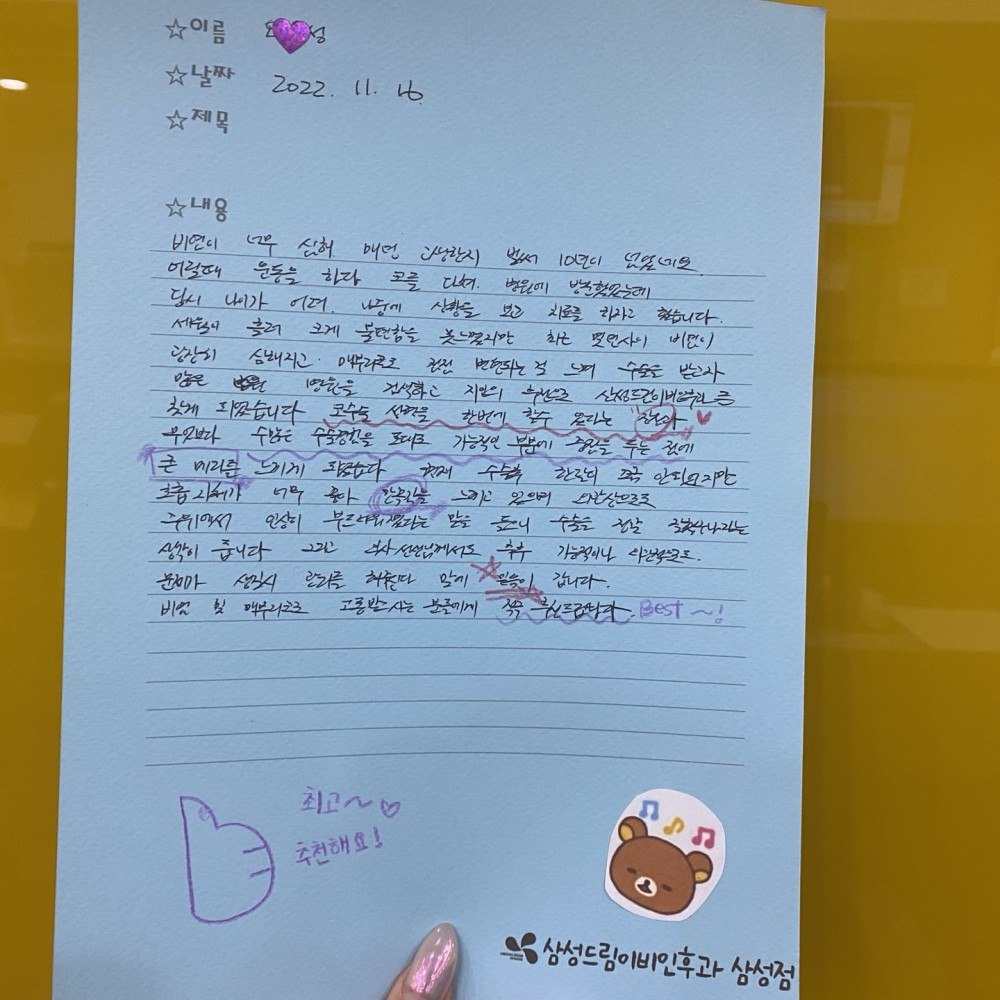 ☆이름
성
☆날짜 2022. 11. 16.
☆제목
☆내용
비염이 너무 심해 매번 고생한지 벌써 10년이 넘었네요.
어릴때 운동을 하다 코를 다쳐. 병원에 방문했었는데
당시 나이가 어려. 나중에 상황을 보고 치료를 하자고 했습니다.
세월이 흘러 크게 불편함을 못느꼈지만 하는 비염이
굉장히 심해지고. 매부리코로 점점 변형되는 걸 느껴 수술을 받고자
많은 병원을 검색하고 지인의 추천으로 삼성드림이비인후과를
찾게 되었습니다 코수술 성형을 한번에 할수 있다는 장점과
무엇보다 수많은 수술경험을 토대로 기능적인 부분에 중점을 두는 것에
큰 메리트를 느끼게 되었습니다 현재 수술후 한달이 조금 안되었지만
호흡 자체가 너무 좋다 만족감을 느끼고 있으며 외관상으로도
주위에서 인상이 부드러워졌다는 말을 들으니 수술을 정말 잘했구나라는
생각이 듭니다 그리고 의사선생님께서도 추후 기능적이나 외관적으로도.
문제가 생길시 관리를 해준다 말에 믿음이 갑니다.
비염 및 매부리코로 고통받으시는 분들에게 적극 추천드립니다. Best ~!
최고~♡
추천해요!
삼성드림이비인후과 삼성점